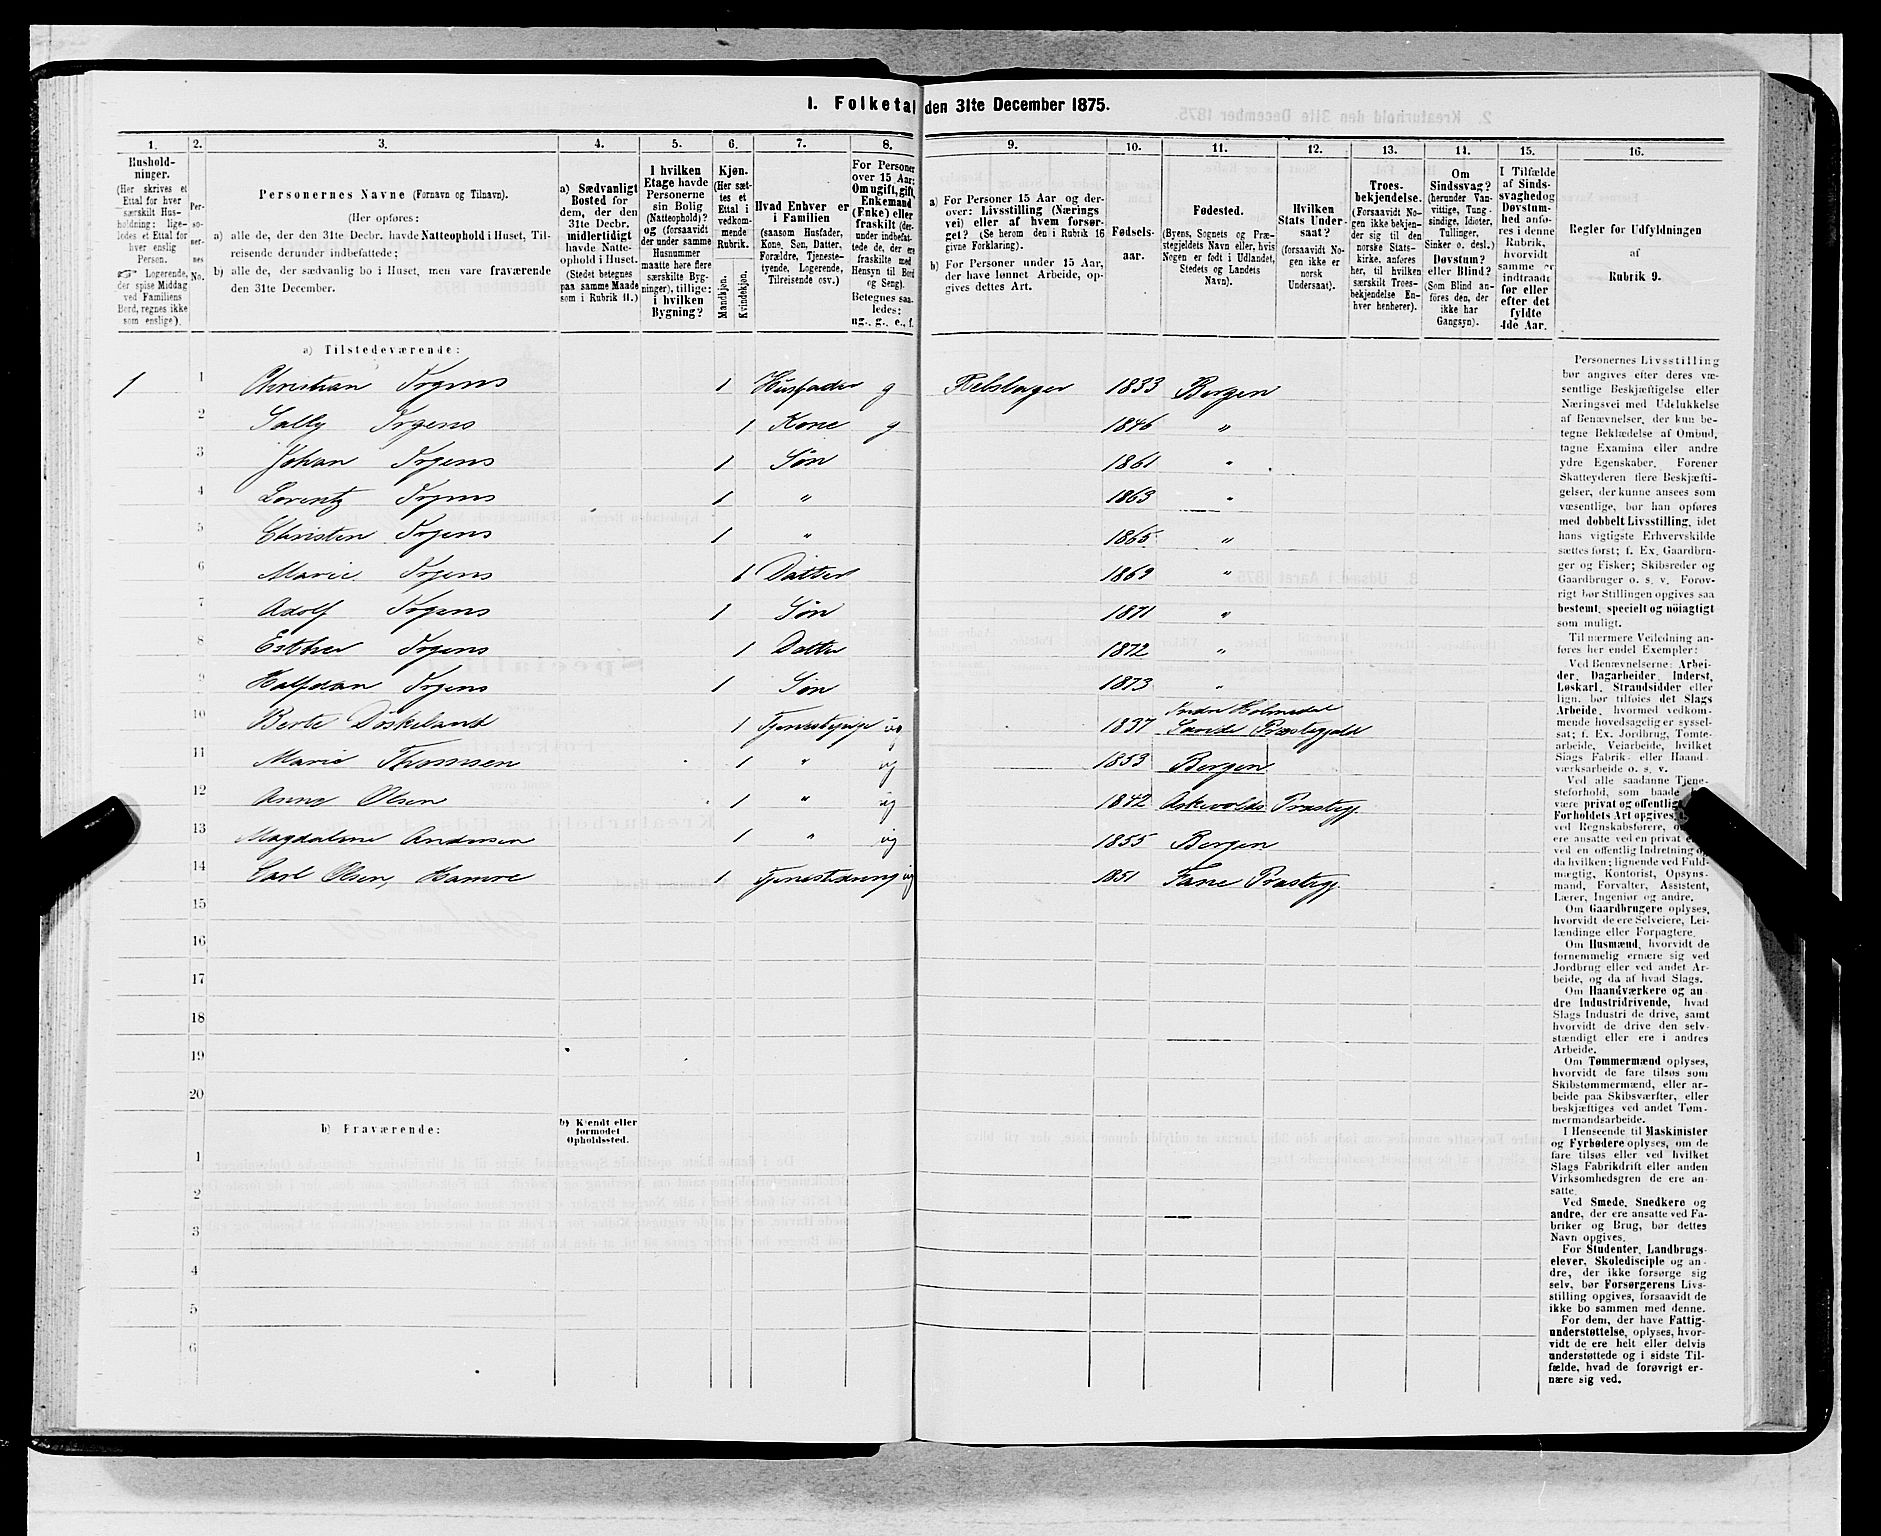 1. Folketal den 31te December 1875.
1. 2. 3. 4. 5. 6. 7. 8. 9. 10. 11. 12. 13. 14. 15. 16.
Hushold-
ninger.
(Her skrives et
Ettal for hver
særskilt Hus-
holdning; lige-
ledes et Ettal for
hver enslig
Person.
☞ Logerende,
der spise Middag
ved Familiens
Bord, regnes ikke
som enslige).
Per-
so-
ner-
nes
No.
Personernes Navne (Fornavn og Tilnavn).
(Her opføres:
a) alle de, der den 31te Decbr. havde Natteophold i Huset, Til-
reisende derunder indbefattede;
b) alle de, der sædvanlig bo i Huset, men vare fraværende
den 31te December.
a) Sædvanligt
Bosted for
dem, der den
31te Decbr.
midlertidigt
havde Natte-
ophold i Huset.
(Stedet betegnes
paa samme Maade
som i Rubrik 11.)
I hvilken
Etage havde
Personerne
sin Bolig
(Natteophold)?
og (forsaavidt
der under samme
Husnummer
maatte høre flere
særskilte Byg-
ninger), tillige:
i hvilken
Bygning?
Kjøn.
(Her sæt-
tes et
Ettal i
vedkom-
mende
Rubrik.
Mandkjøn.
Kvindekjøn.
Hvad Enhver er
i Familien
(saasom Husfader,
Kone, Søn, Datter,
Forældre, Tjeneste-
tyende, Logerende,
Tilreisende osv.)
For Personer
over 15 Aar:
Om ugift, gift,
Enkemand
(Enke) eller
fraskilt (der-
under indbefat-
tede de, der ere
fraskilte med
Hensyn til Bord
og Seng).
Betegnes saa-
ledes:
ug., g., e., f.
a) For Personer 15 Aar og der-
over: Livsstilling (Nærings
vei) eller af hvem forsør-
get? (Se herom den i Rubrik 16
givne Forklaring).
b) For Personer under 15 Aar,
der have lønnet Arbeide, op-
gives dettes Art.
Fødsels-
aar.
Fødested.
(Byens, Sognets og Præ-
stegjeldets Navn eller, hvis
Nogen er født i Udlandet,
Stedets og Landets
Navn).
Hvilken
Stats Under-
saat?
(forsaavidt No-
gen ikke er
norsk
Undersaat).
Troes-
bekjendelse.
(Forsaavidt No-
gen ikke bekjen-
der sig til den
norske Stats-
kirke, anføres
her, til hvilken
særskilt Troes-
bekjendelse En-
hver henhører).
Om
Sindssvag?
(herunder Van-
vittige, Tung-
sindige, Idioter,
Tullinger,
Sinker o. desl.)
Døvstum?
eller Blind?
(Som Blind an-
føres den, der
ikke har
Gangsyn).
I Tilfælde
af Sinds-
svaghed og
Døvstum-
hed anfø-
res i denne
Rubrik,
hvorvidt
samme er
indtraadt
før eller
efter det
fyldte
4de Aar.
Regler for Udfyldningen
af
Rubrik 9.
a) Tilstedeværende:
1 1 Christian Irgens 1 Husfader g Rebslager 1833 Bergen
2 Sally Irgens 1 Kone g 1846 "
3 Johan Irgens 1 Søn 1861 "
4 Lorentz Irgens 1 " 1863 "
5 Christen Irgens 1 " 1865 "
6 Marie Irgens 1 Datter 1869 "
7 Adolf Irgens 1 Søn 1871 "
8 Esther Irgens 1 Datter 1872 "
9 Halfdan Irgens 1 Søn 1873 "
10 Berte Døskeland 1 Tjenestepige ug 1837 Indre Holmedal
Præstegjeld
11 Marie Thomsen 1 " ug 1853 Bergen
12 Anne Olsen 1 " ug 1842 Askevolds Præstegj.
13 Magdalene Andersen 1 " ug 1855 Bergen
14 Carl Olsen, Hamre 1 Tjenestedreng ug 1851 Fane Præstegj.
15
16
17
18
19
20
b) Fraværende:
b) Kjendt eller
formodet
Opholdssted.
1
2
3
4
5
6
Personernes Livsstilling
bør angives efter deres væ-
sentlige Beskjæftigelse eller
Næringsvei med Udelukkelse
af Benævnelser, der kun be-
tegne Beklædelse af Ombud,
tagne Examina eller andre
ydre Egenskaber. Forener
Skatteyderen flere Beskjæfti-
gelser, der kunne ansees som
væsentlige, bør han opføres
med dobbelt Livsstilling, idet
hans vigtigste Erhvervskilde
sættes først; f. Ex. Gaardbru-
ger og Fisker; Skibsreder og
Gaardbruger o. s. v. Forøv-
rigt bør Stillingen opgives saa
bestemt, specielt og nøiagtigt
som muligt.
Til nærmere Veiledning an-
føres her endel Exempler:
Ved Benævnelserne: Arbei-
der, Dagarbeider, Inderst,
Løskarl, Strandsidder eller
lign. bør tilføies det Slags
Arbeide, hvormed vedkom-
mende hovedsagelig er syssel-
sat; f. Ex. Jordbrug, Tomte-
arbeide, Veiarbeide, hvilket
Slags Fabrik- eller Haand-
værksarbeide o. s. v.
Ved alle saadanne Tjene-
steforhold, som baade
være privat og offentlig,
Forholdets Art opgives,
ved Regnskabsførere,
ere ansatte ved en privat
ved en offentlig Indretning
da hvilken; lignende ved Fuld-
mægtig, Kontorist, Opsyns-
mand, Forvalter, Assistent,
Lærer, Ingeniør og andre.
Om Gaardbrugere oplyses,
hvorvidt de ere Selveiere, Lei-
lændinge eller Forpagtere.
Om Husmænd, hvorvidt de
fornemmelig ernære sig ved
Jordbrug eller ved andet Ar-
beide, og da af hvad Slags.
Om Haandværkere og an-
dre Industridrivende, hvad
Slags Industri de drive, samt
hvorvidt de drive den selv-
stændigt eller ere i andres
Arbeide.
Om Tømmermænd oplyses,
hvorvidt de fare tilsøs som
Skibstømmermænd, eller ar-
beide paa Skibsværfter, eller
beskjæftiges ved andet Tøm-
mermandsarbeide.
I Henseende til Maskinister
og Fyrbødere oplyses, om de
fare tilsøs eller ved hvilket
Slags Fabrikdrift eller anden
Virksomhedsgren de ere an-
satte.
Ved Smede, Snedkere og
andre, der ere ansatte ved Fa-
briker og Brug, bør dettes
Navn opgives.
For Studenter, Landbrugs-
elever, Skoledisciple og an-
dre, der ikke forsørge sig
selv, bør Forsørgerens Livs-
stilling opgives, forsaavidt de
ikke bo sammen med denne.
For dem, der have Fattig-
understøttelse, oplyses, hvor-
vidt de ere helt eller delvis
understøttede og i sidste Til-
fælde, hvad de forøvrigt er-
nære sig ved.